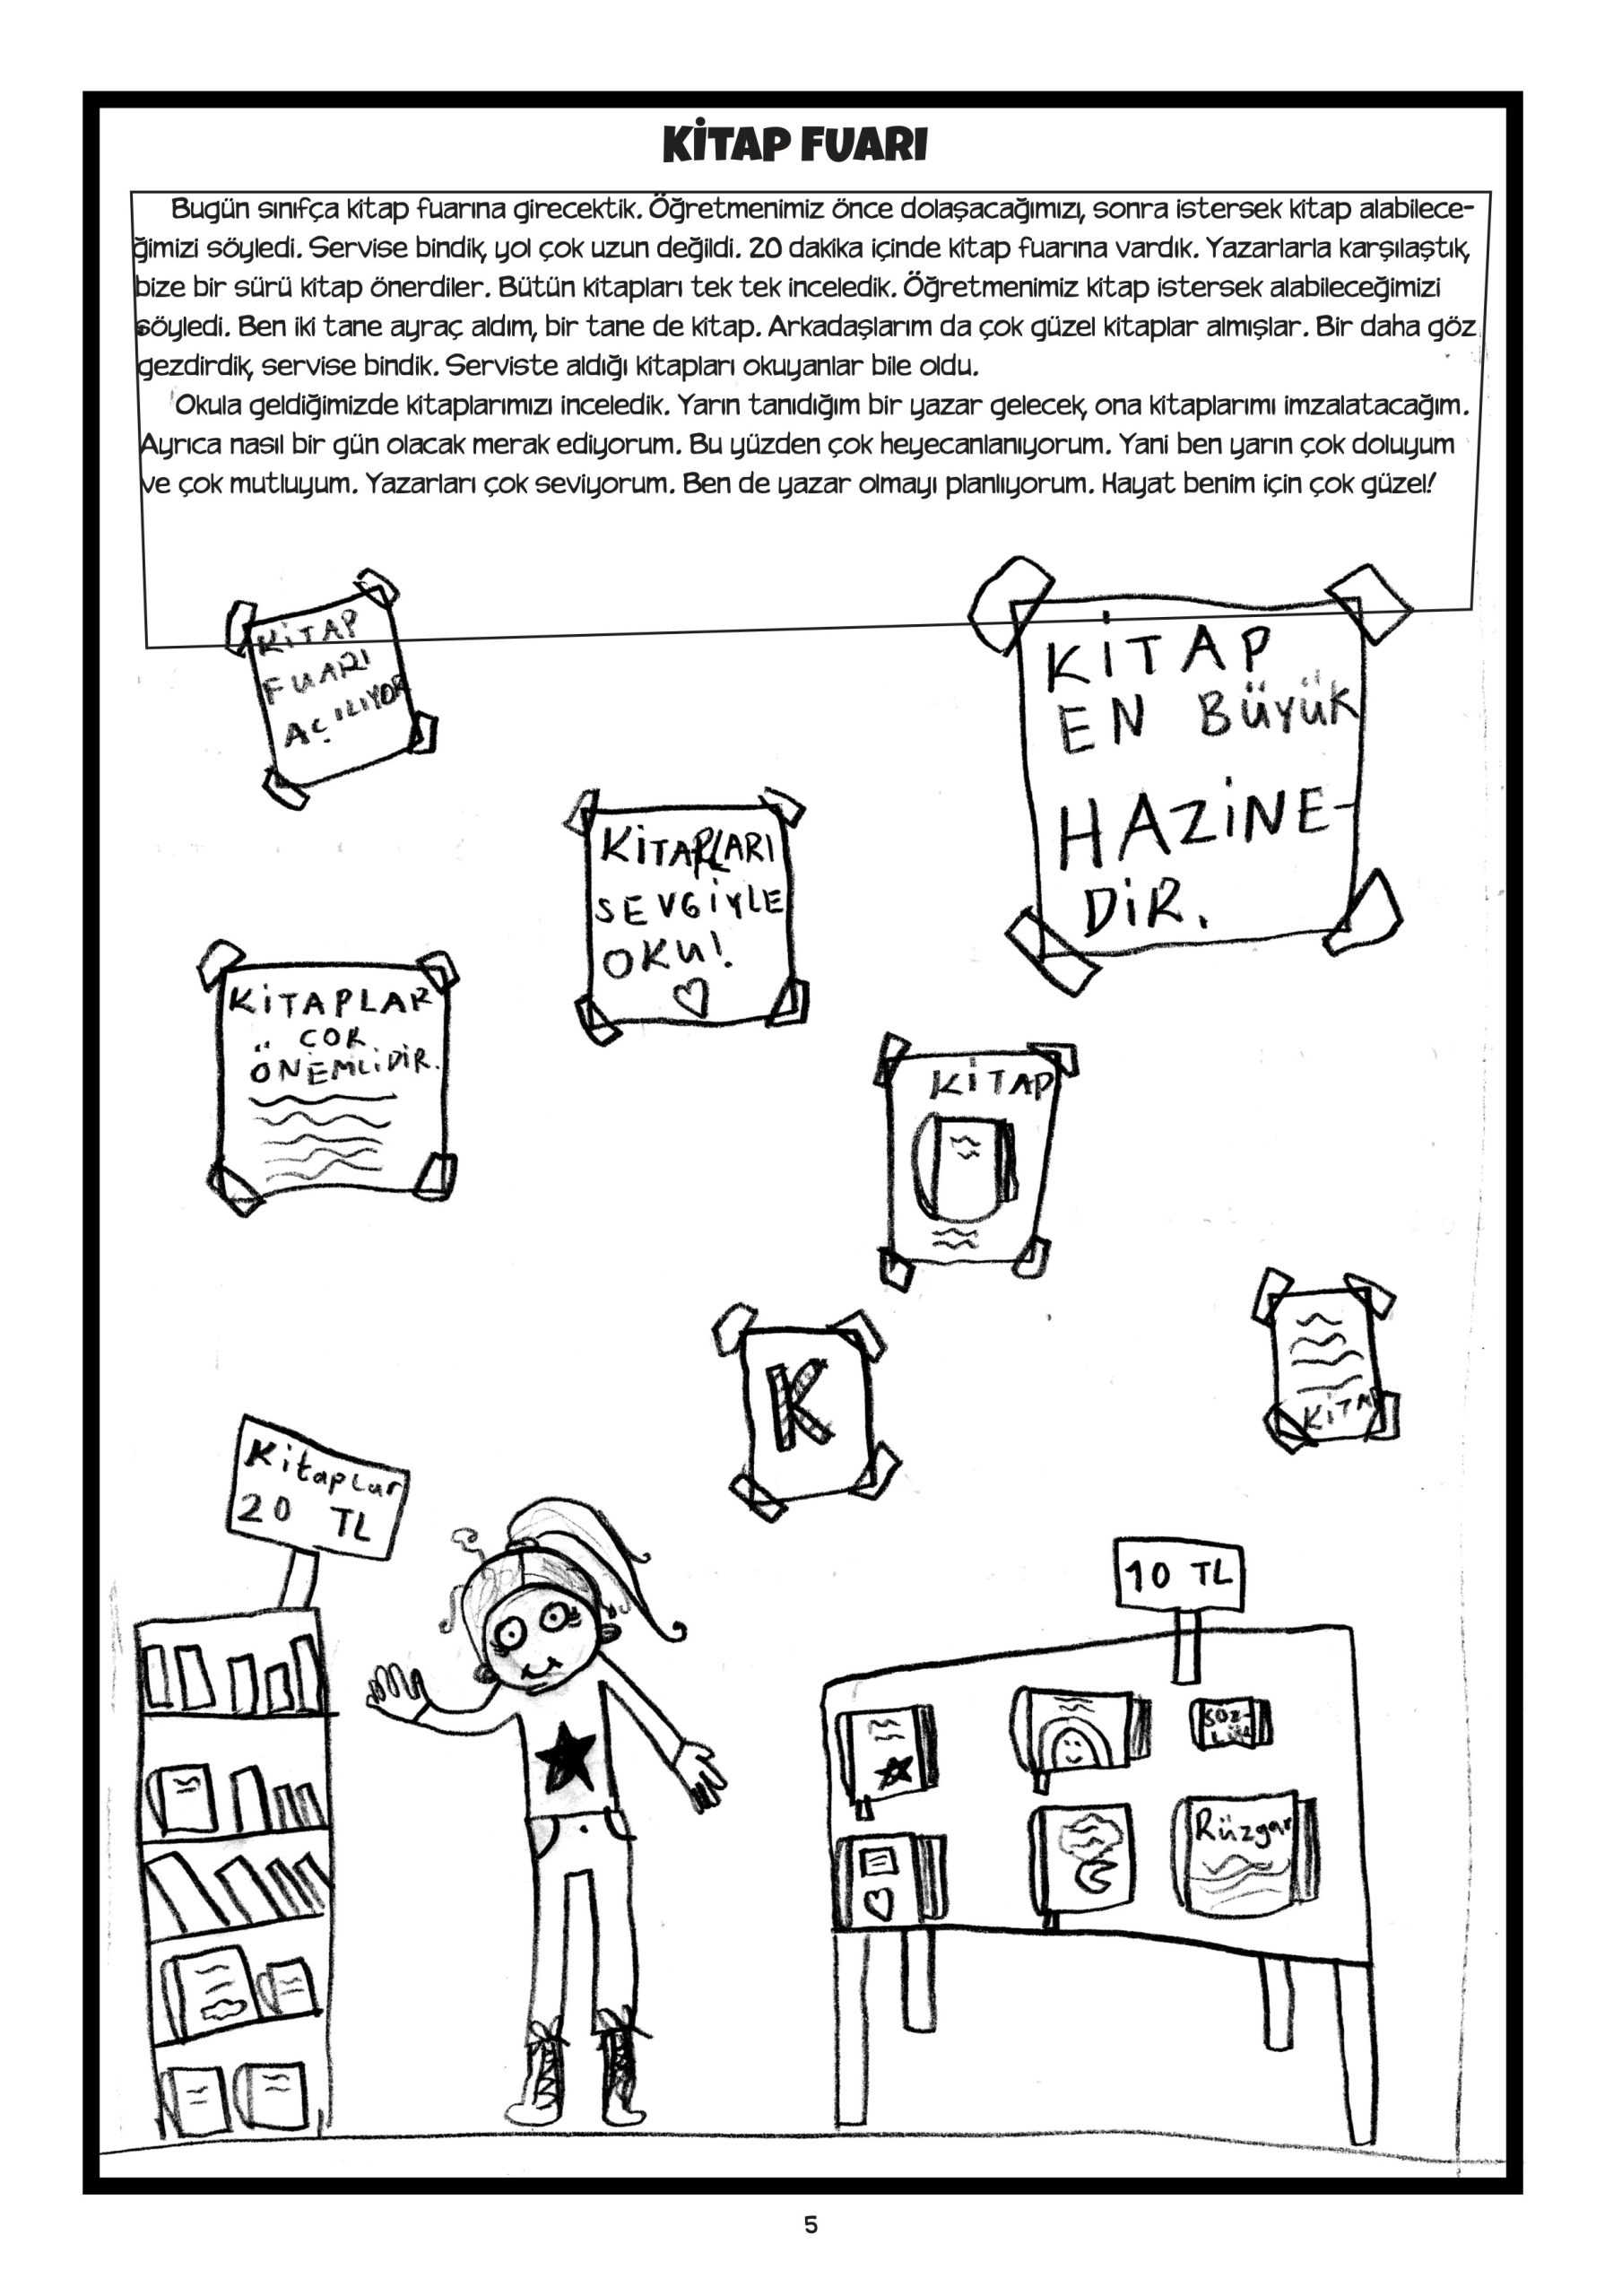 KİTAP FUARI
Bugün sınıfça kitap fuarına girecektik. Öğretmenimiz önce dolaşacağımızı, sonra istersek kitap alabilece-
ğimizi söyledi. Servise bindik, yol çok uzun değildi. 20 dakika içinde kitap fuarına vardık. Yazarlarla karşılaştık,
bize bir sürü kitap önerdiler. Bütün kitapları tek tek inceledik. Öğretmenimiz kitap istersek alabileceğimizi
söyledi. Ben iki tane ayraç aldım, bir tane de kitap. Arkadaşlarım da çok güzel kitaplar almışlar. Bir daha göz
gezdirdik, servise bindik. Serviste aldığı kitapları okuyanlar bile oldu.
Okula geldiğimizde kitaplarımızı inceledik. Yarın tanıdığım bir yazar gelecek, ona kitaplarımı imzalatacağım.
Ayrıca nasıl bir gün olacak merak ediyorum. Bu yüzden çok heyecanlanıyorum. Yani ben yarın çok doluyum
ve çok mutluyum. Yazarları çok seviyorum. Ben de yazar olmayı planlıyorum. Hayat benim için çok güzel!
KİTAP
FUARI
AÇILIYOR
KİTAP
EN BÜYÜK
HAZİNE-
DİR.
KİTAPLARI
SEVGİYLE
OKU!
KİTAPLAR
ÇOK
ÖNEMLİDİR.
KİTAP
K
KİTAP
Kitaplar
20 TL
10 TL
SÖZ-
LÜK
Rüzgar
5